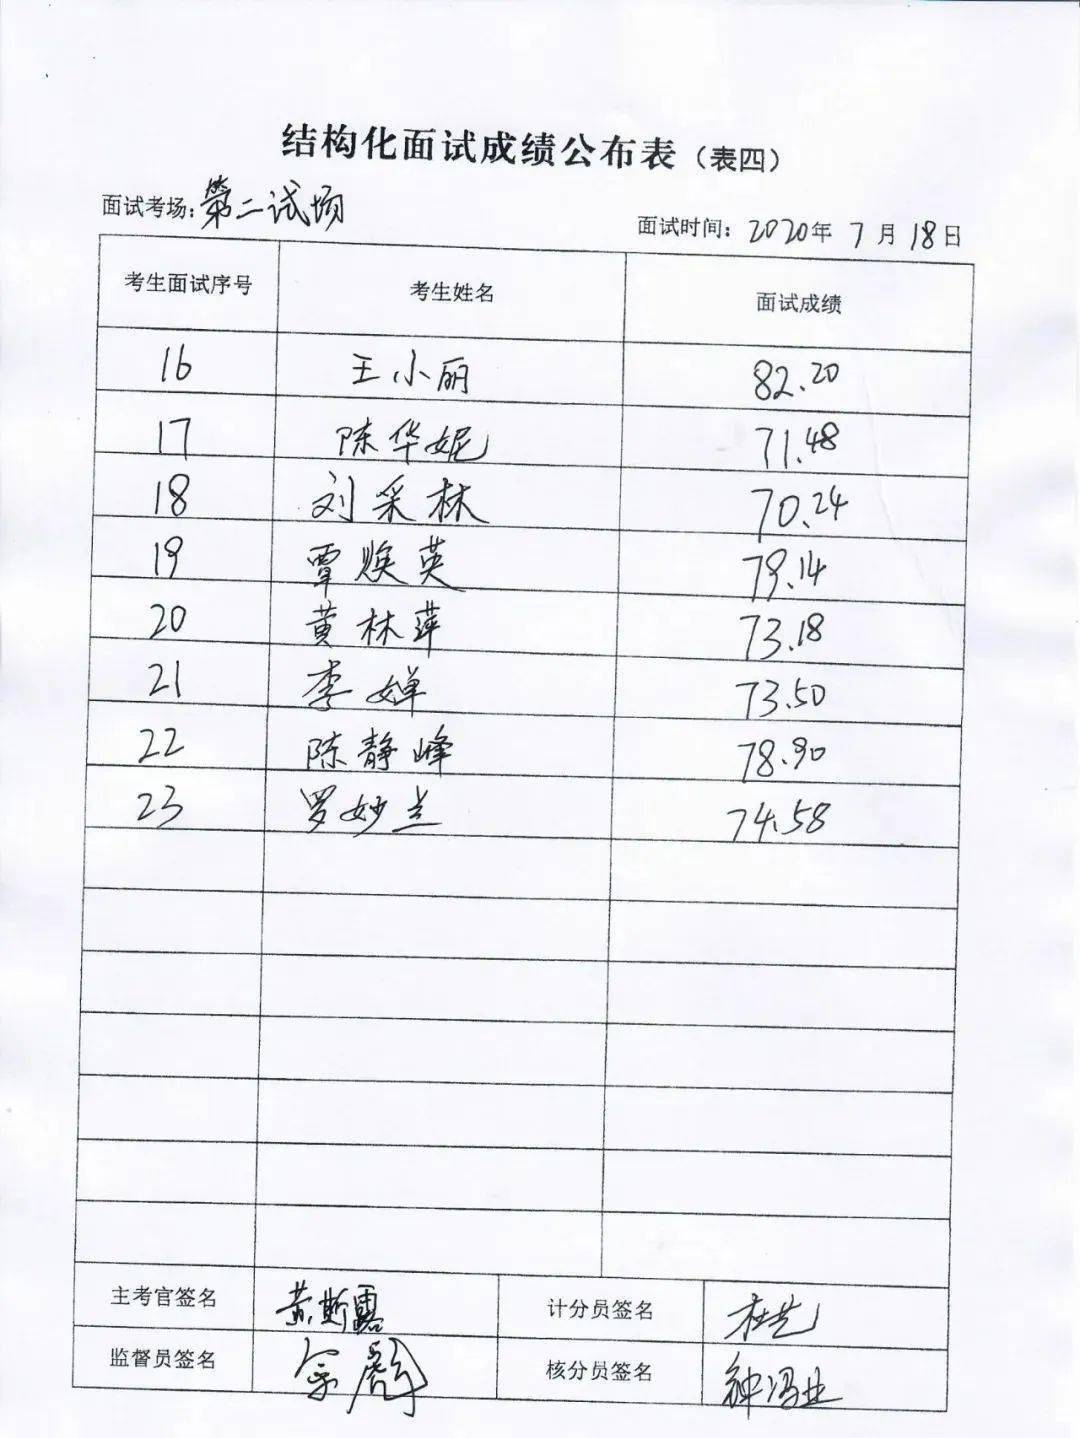 结构化面试成绩公布表（表四）
面试考场：第二试场 面试时间：2020年 7月 18日
考生面试序号 考生姓名 面试成绩
16 王小丽 82.20
17 陈华妮 71.48
18 刘采林 70.24
19 覃焕英 79.14
20 黄林萍 73.18
21 李婵 73.50
22 陈静峰 78.90
23 罗妙兰 74.58
主考官签名 黄斯露 计分员签名
监督员签名 核分员签名